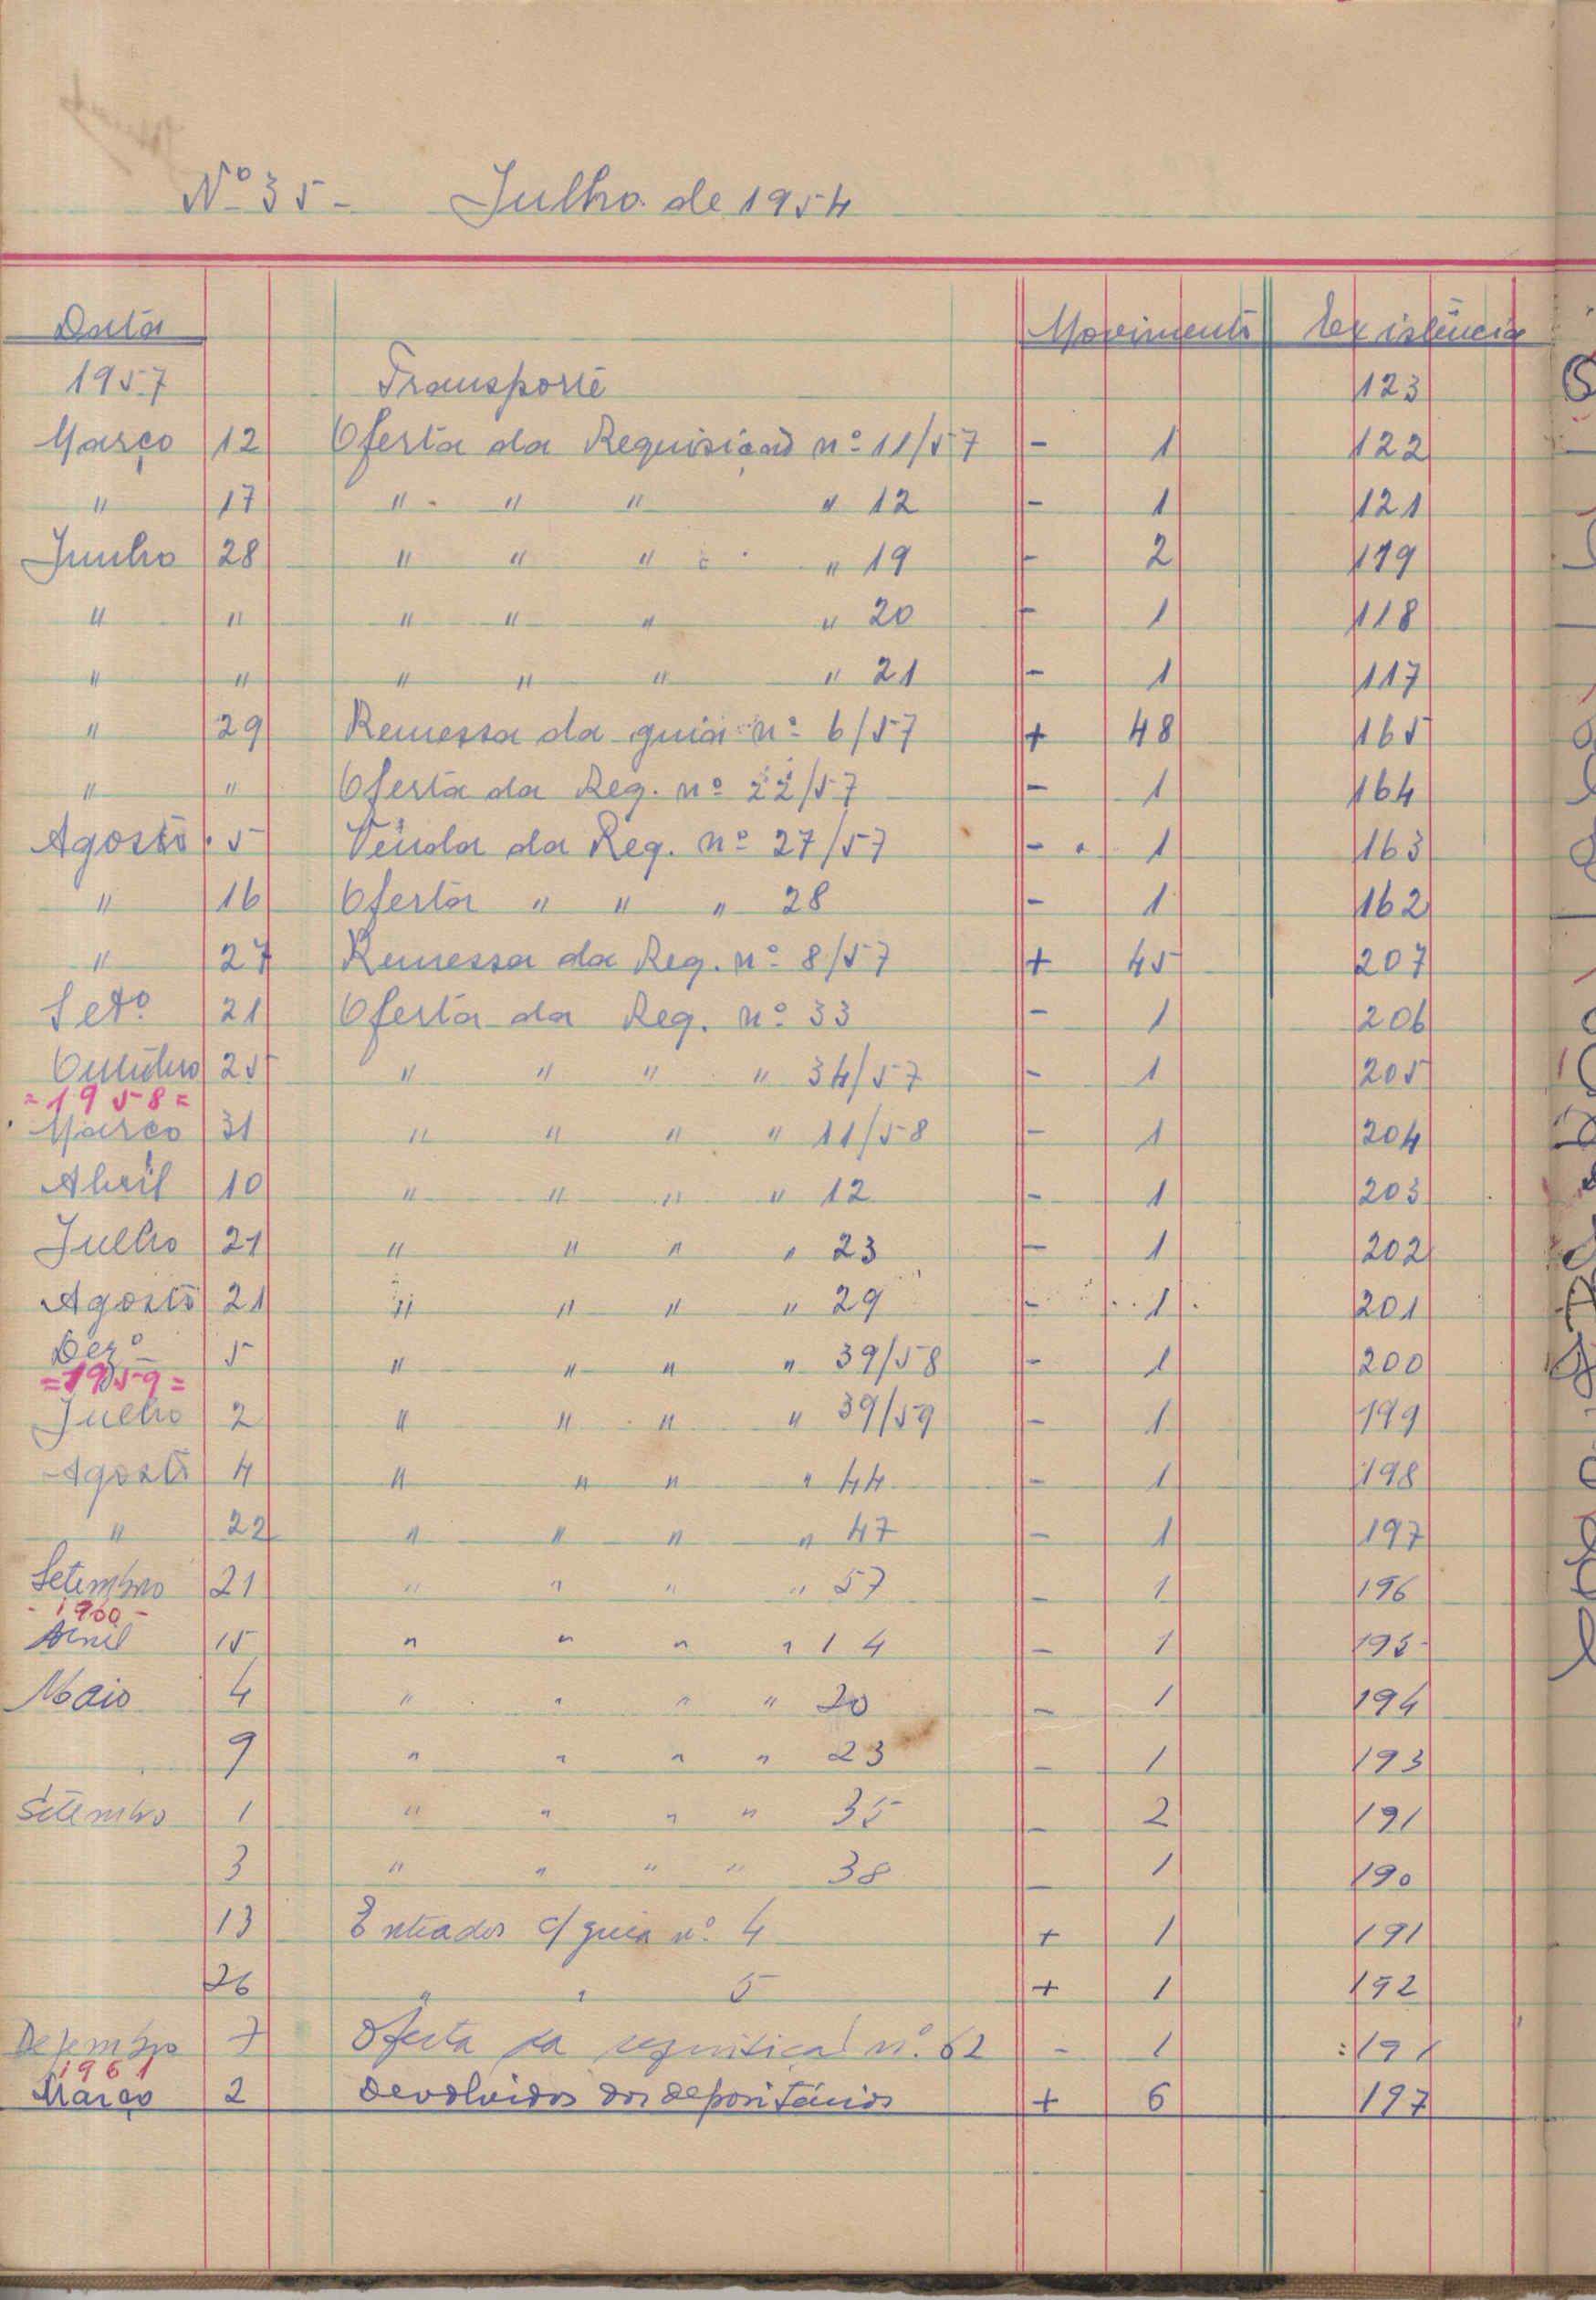 Nº 35 - Julho de 1954
Data Movimento Existência
1957 Transporte 123
Março 12 Oferta da Requisição nº 11/57 - 1 122
" 17 " " " " 12 - 1 121
Junho 28 " " " " 19 - 2 119
" " " " " " 20 - 1 118
" " " " " " 21 - 1 117
" 29 Remessa da guia nº 6/57 + 48 165
" " Oferta da Req. nº 22/57 - 1 164
Agosto 5 Venda da Req. nº 27/57 - 1 163
" 16 Oferta " " " 28 - 1 162
" 27 Remessa da Req. nº 8/57 + 45 207
Setº 21 Oferta da Req. nº 33 - 1 206
Outubro 25 " " " " 34/57 - 1 205
=1958=
Março 31 " " " " 11/58 - 1 204
Abril 10 " " " " 12 - 1 203
Julho 21 " " " " 23 - 1 202
Agosto 21 " " " " 29 - 1 201
Dezº 5 " " " " 39/58 - 1 200
=1959=
Julho 2 " " " " 39/59 - 1 199
Agosto 4 " " " " 44 - 1 198
" 22 " " " " 47 - 1 197
Setembro 21 " " " " 57 - 1 196
- 1960 -
Abril 15 " " " " 14 - 1 195
Maio 4 " " " " 20 - 1 194
9 " " " " 23 - 1 193
Setembro 1 " " " " 35 - 2 191
3 " " " " 38 - 1 190
13 Entrados c/ guia nº 4 + 1 191
26 " " 5 + 1 192
Dezembro 7 Oferta da requisição nº 62 - 1 191
1961
Março 2 Devolvidos dos depositários + 6 197